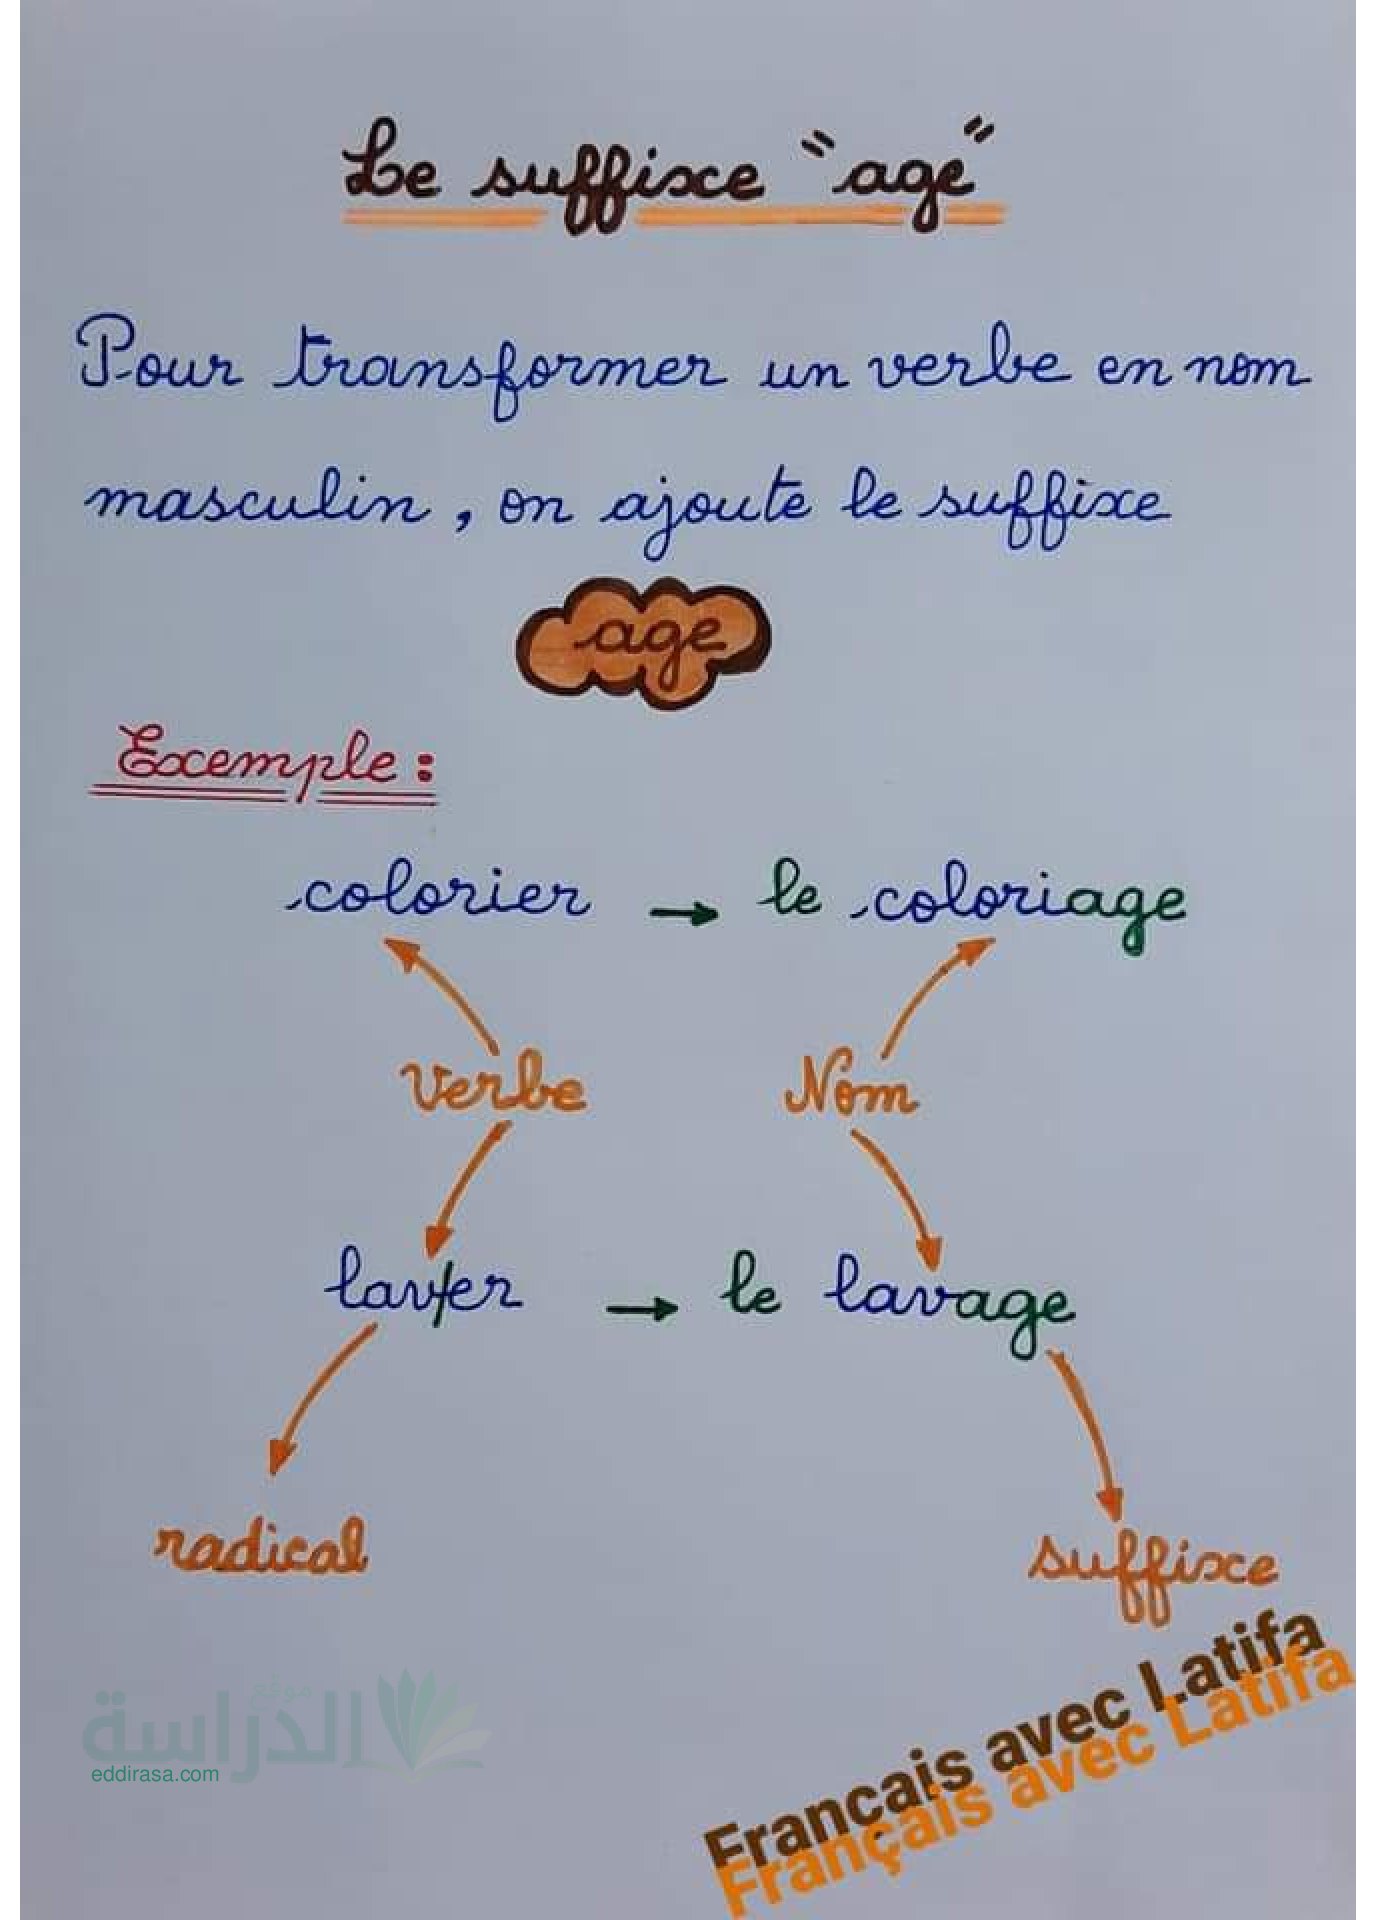 Le suffixe "age"
Pour transformer un verbe en nom
masculin, on ajoute le suffixe
age
Exemple :
colorier → le coloriage
Verbe Nom
lav/er → le lavage
radical suffixe
موقع
الدراسة
eddirasa.com
Francais avec Latifa
Français avec Latifa